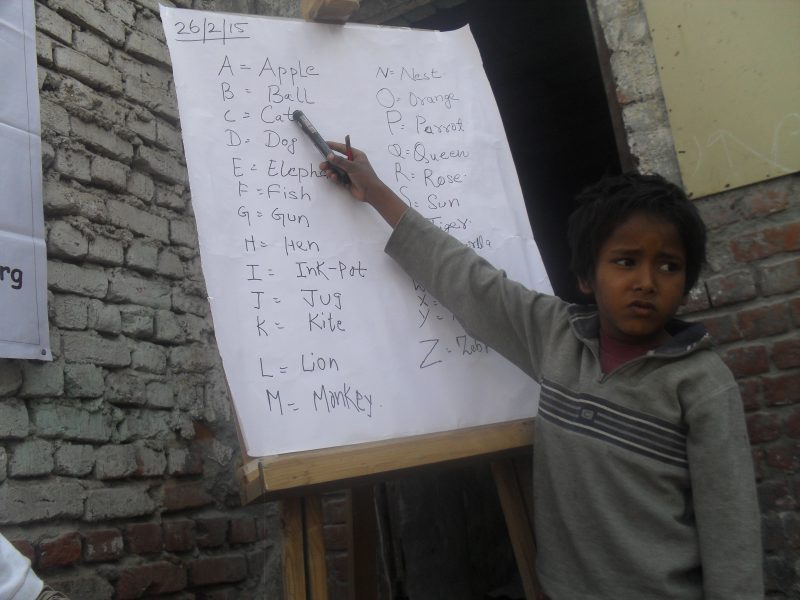 26/2/15
A = Apple
B = Ball
C = Cat
D = Dog
E =
F = Fish
G = Gun
H = Hen
I = Ink-Pot
J = Jug
K = Kite
L = Lion
M = Monkey.
N = Nest
O = Orange
P = Parrot
Q = Queen
R = Rose.
S = Sun
Tiger
X
Y
Z =
rg